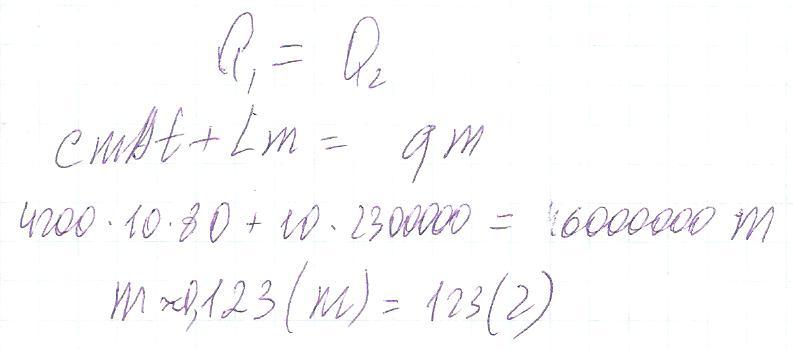 Q₁ = Q₂
cmΔt + Lm = qm
4200 · 10 · 80 + 10 · 2300000 = 46000000 m
m ≈ 0,123 (м) = 123 (г)